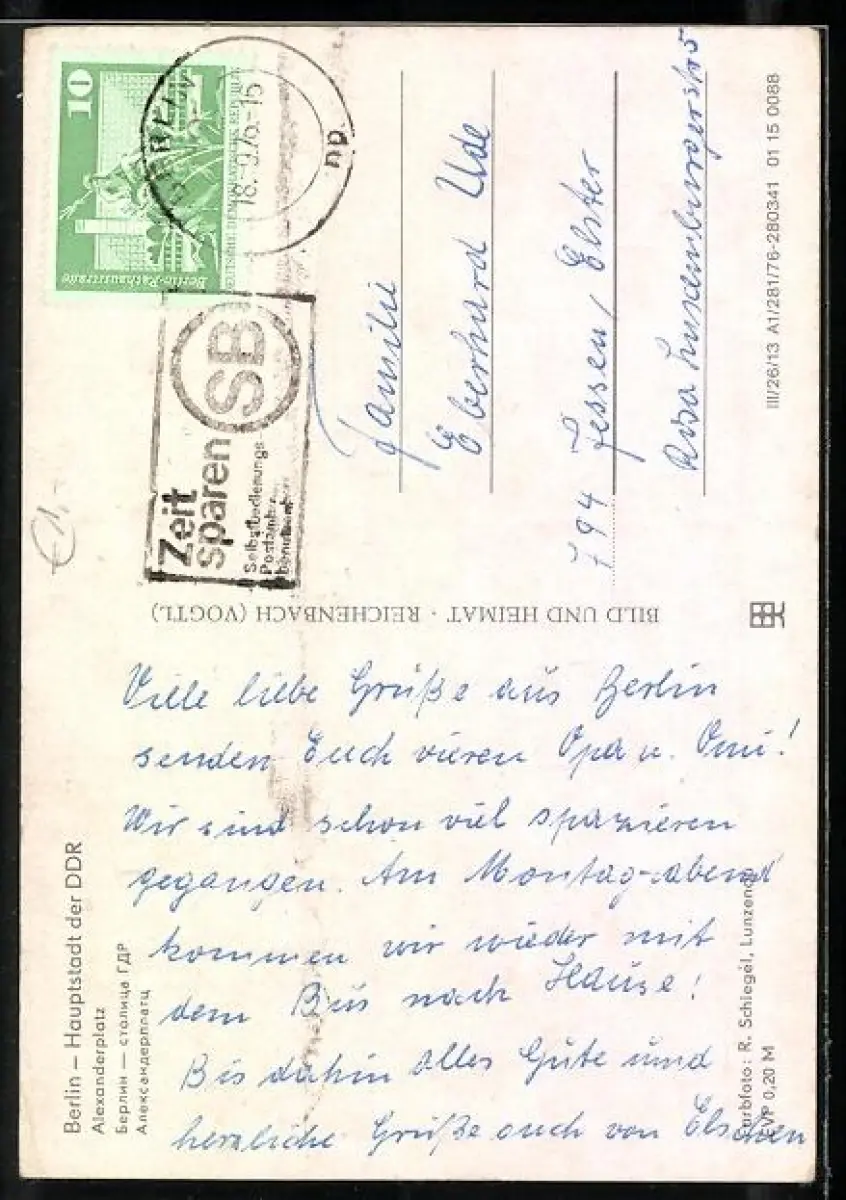 10
DEUTSCHE DEMOKRATISCHE REPUBLIK
Berlin-Rathausstraße
BERLIN
18.-9.76.-16
Zeit
sparen
SB
Selbstbedienungs
Postämter
benutzen
Familie
Eberhard Ude
794 Jessen, Elster
Rosa Luxemburgerstr 5
III/26/13 A1/281/76-280341 01 15 0088
BILD UND HEIMAT · REICHENBACH (VOGTL)
€1,-
Viele liebe Grüße aus Berlin
senden Euch vieren Opa u. Omi!
Wir sind schon viel spazieren
gegangen. Am Montag-abend
kommen wir wieder mit
dem Bus nach Hause!
Bis dahin alles Gute und
herzliche Grüße auch von Elschen
Berlin – Hauptstadt der DDR
Alexanderplatz
Берлин — столица ГДР
Александерплатц
Farbfoto: R. Schlegel, Lunzenau
EVP 0,20 M